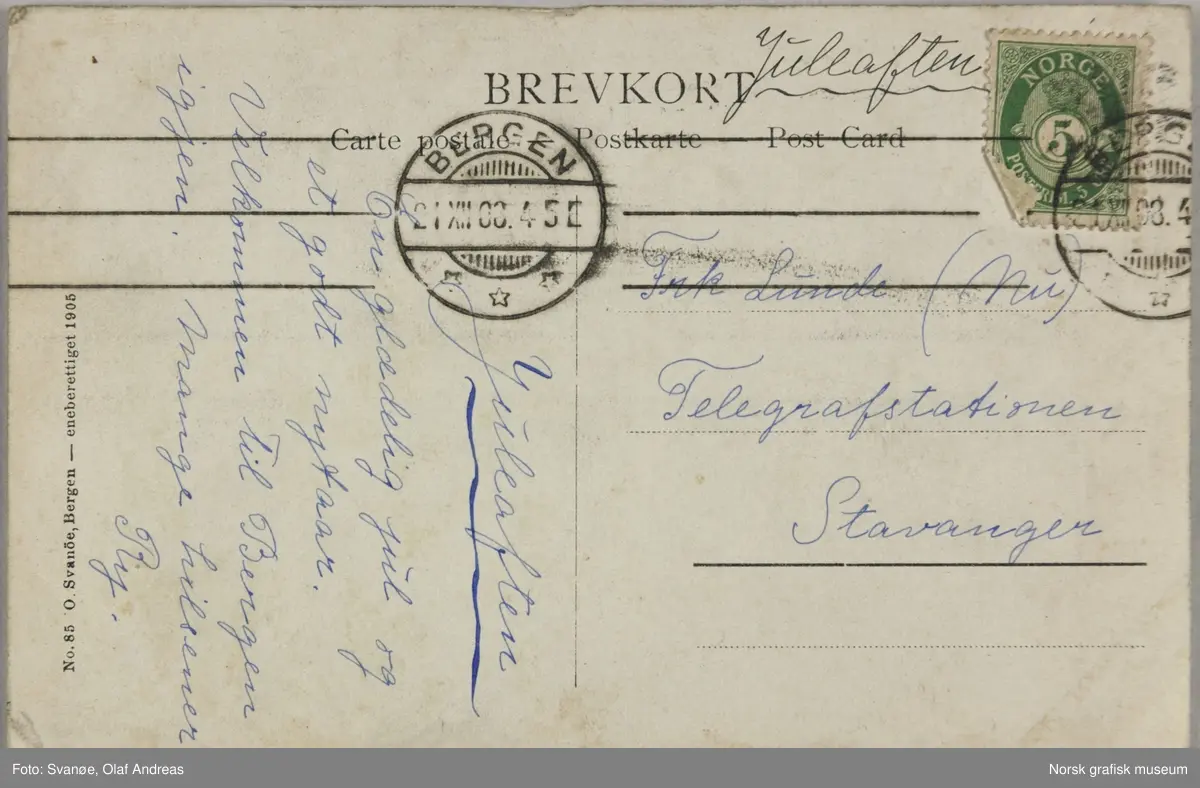 Julleaften
BREVKORT
Carte postale Postkarte Post Card
NORGE
5
BERGEN
21 XII 08. 4-5 E
Frk Lunde (Nu)
Telegrafstationen
Stavanger
Julleaften
En glædelig jul og
et godt nytaar.
Velkommen til Bergen
igjen. Mange hilsener
Ry.
No. 85 O. Svanöe, Bergen — eneberettiget 1905
Foto: Svanøe, Olaf Andreas
Norsk grafisk museum